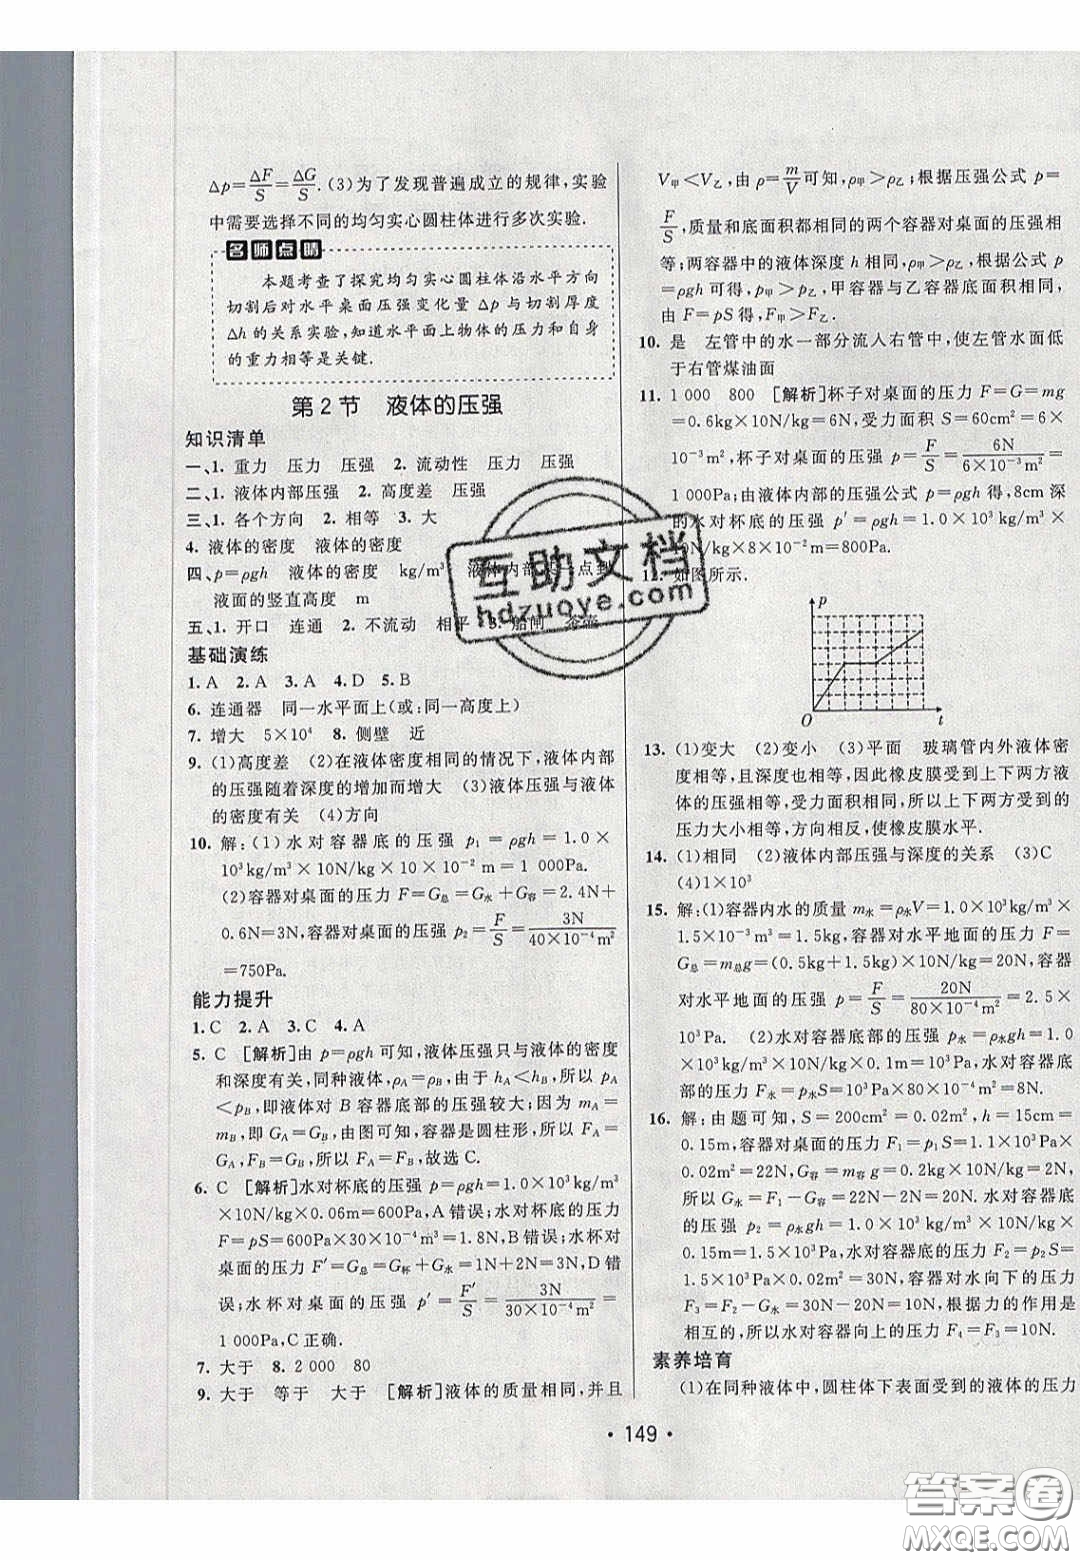 Δp=ΔF/S=ΔG/S.(3)为了发现普遍成立的规律,实验
中需要选择不同的均匀实心圆柱体进行多次实验.
名师点睛
本题考查了探究均匀实心圆柱体沿水平方向
切割后对水平桌面压强变化量 Δp 与切割厚度
Δh 的关系实验,知道水平面上物体的压力和自身
的重力相等是关键.
第2节 液体的压强
知识清单
一、1. 重力 压力 压强 2. 流动性 压力 压强
二、1. 液体内部压强 2. 高度差 压强
三、1. 各个方向 2. 相等 3. 大
4. 液体的密度 液体的密度
四、p=ρgh 液体的密度 kg/m³ 液体内部某一点到
液面的竖直高度 m
五、1. 开口 连通 2. 不流动 相平 3. 船闸 茶壶
基础演练
1. A 2. A 3. A 4. D 5. B
6. 连通器 同一水平面上(或:同一高度上)
7. 增大 5×10⁴ 8. 侧壁 近
9. (1)高度差 (2)在液体密度相同的情况下,液体内部
的压强随着深度的增加而增大 (3)液体压强与液体
的密度有关 (4)方向
10. 解:(1)水对容器底的压强 p₁=ρgh=1.0×
10³kg/m³×10N/kg×10×10⁻²m=1 000Pa.
(2)容器对桌面的压力 F=G总=G水+G容=2.4N+
0.6N=3N,容器对桌面的压强 p₂=F/S=3N/40×10⁻⁴m²
=750Pa.
能力提升
1. C 2. A 3. C 4. A
5. C [解析]由 p=ρgh 可知,液体压强只与液体的密度
和深度有关,同种液体,ρA=ρB,由于 hA<hB,所以 pA
<pB,即液体对 B 容器底部的压强较大;因为 mA=
mB,即 GA=GB,由图可知,容器是圆柱形,所以 FA=
GA,FB=GB,所以 FA=FB,故选 C.
6. C [解析]水对杯底的压强 p=ρgh=1.0×10³kg/m³
×10N/kg×0.06m=600Pa,A 错误;水对杯底的压力
F=pS=600Pa×30×10⁻⁴m³=1.8N,B错误;水杯对
桌面的压力 F′=G总=G杯+G水=1N+2N=3N,D错
误;水杯对桌面的压强 p′=F′/S=3N/30×10⁻⁴m²=
1 000Pa,C正确.
7. 大于 8. 2 000 80
9. 大于 等于 大于 [解析]液体的质量相同,并且
V甲<V乙,由 ρ=m/V可知,ρ甲>ρ乙;根据压强公式 p=
F/S,质量和底面积都相同的两个容器对桌面的压强相
等;两容器中的液体深度 h 相同,ρ甲>ρ乙,根据公式
p=ρgh 可得,p甲>p乙,甲容器与乙容器底面积相同,
由 F=pS 得,F甲>F乙.
10. 是 左管中的水一部分流入右管中,使左管水面低
于右管煤油面
11. 1 000 800 [解析]杯子对桌面的压力 F=G=mg
=0.6kg×10N/kg=6N,受力面积 S=60cm²=6×
10⁻³m²,杯子对桌面的压强 p=F/S=6N/6×10⁻³m²=
1 000Pa;由液体内部的压强公式 p=ρgh 得,8cm 深
的水对杯底的压强 p′=ρgh=1.0×10³kg/m³×
10N/kg×8×10⁻²m=800Pa.
12. 如图所示.
p
O t
13. (1)变大 (2)变小 (3)平面 玻璃管内外液体密
度相等,且深度也相等,因此橡皮膜受到上下两方液
体的压强相等,受力面积相同,所以上下两方受到的
压力大小相等,方向相反,使橡皮膜水平.
14. (1)相同 (2)液体内部压强与深度的关系 (3)C
(4)1×10³
15. 解:(1)容器内水的质量 m水=ρ水V=1.0×10³kg/m³×
1.5×10⁻³m³=1.5kg,容器对水平地面的压力 F=
G总=m总g=(0.5kg+1.5kg)×10N/kg=20N,容器
对水平地面的压强 p=F/S=20N/80×10⁻⁴m²=2.5×
10³Pa. (2)水对容器底部的压强 p水=ρ水gh=1.0×
10³kg/m³×10N/kg×0.1m=10³Pa,水对容器底
部的压力 F水=p水S=10³Pa×80×10⁻⁴m²=8N.
16. 解:由题可知,S=200cm²=0.02m²,h=15cm=
0.15m,容器对桌面的压力 F₁=p₁S=1.1×10³Pa×
0.02m²=22N,G容=m容g=0.2kg×10N/kg=2N,
所以 G水=F₁-G容=22N-2N=20N. 水对容器底
的压强 p₂=ρ水gh=1.0×10³kg/m³×10N/kg×
0.15m=1.5×10³Pa,水对容器底的压力 F₂=p₂S=
1.5×10³Pa×0.02m²=30N,容器对水向下的压力
F₃=F₂-G水=30N-20N=10N,根据力的作用是
相互的,所以水对容器向上的压力 F₄=F₃=10N.
素养培育
(1)在同种液体中,圆柱体下表面受到的液体的压力
· 149 ·
互助文档
hdzuoye.com
答案圈
MXQE.COM